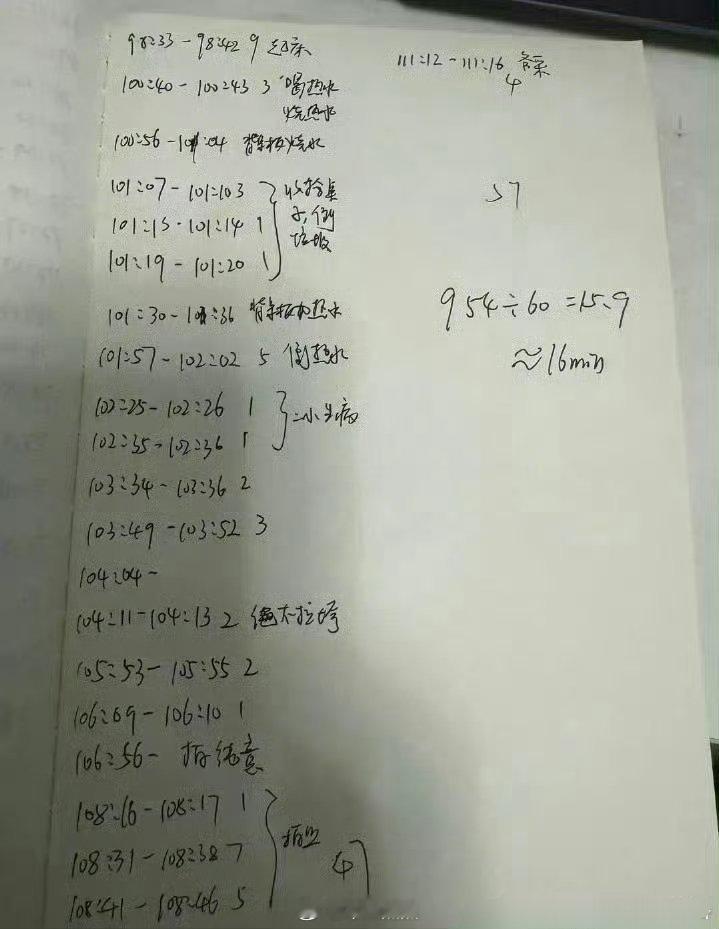 98:33 - 98:42 9 起床
100:40 - 100:43 3 喝热水
烧热水
100:56 - 101:04 背景板烧水
101:07 - 101:103
101:13 - 101:14 1
101:19 - 101:20 1
收拾桌
子,倒
垃圾
101:30 - 101:36 背景板加热水
101:57 - 102:02 5 倒热水
102:25 - 102:26 1
102:35 - 102:36 1
103:34 - 103:36 2
103:49 - 103:52 3
104:04 -
104:11 - 104:13 2
105:53 - 105:55 2
106:09 - 106:10 1
106:56 -
108:16 - 108:17 1
108:31 - 108:38 7
108:41 - 108:46 5
111:12 - 111:16 备菜
4
57
954÷60=15.9
≈16min